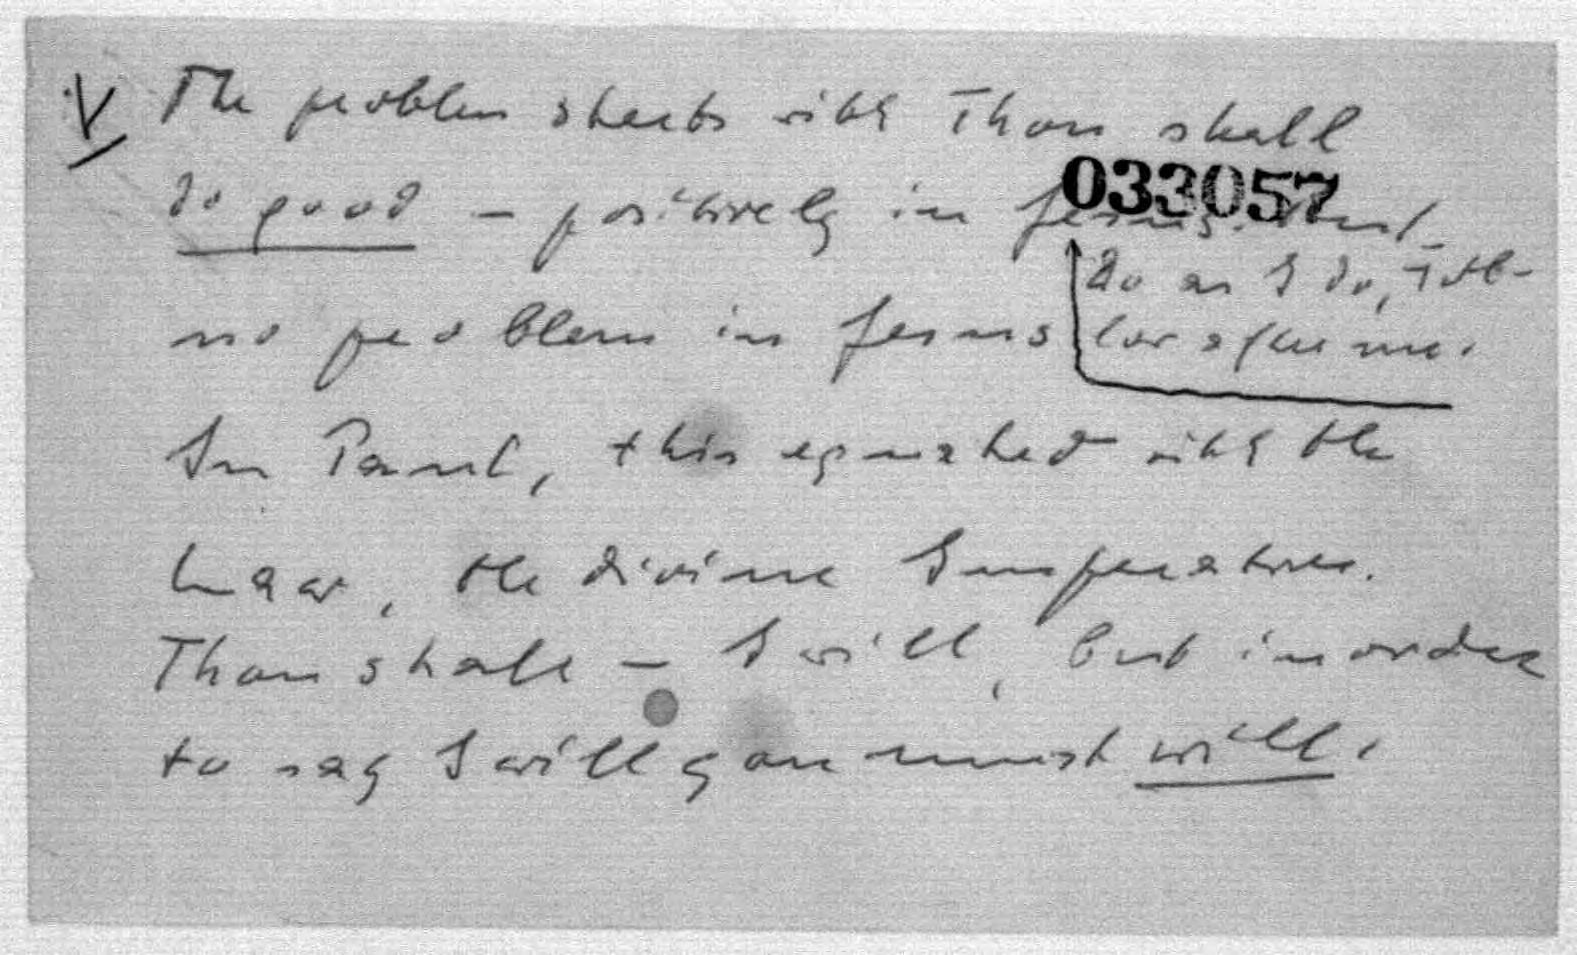 V The problem starts with Thou shall
033057
do good — positively in Jesus. But
no problem in Jesus
do as I do, Fol-
low after me.
In Paul, this equated with the
Law, the divine Imperatives.
Thou shall — I will, but in order
to say I will you must will.